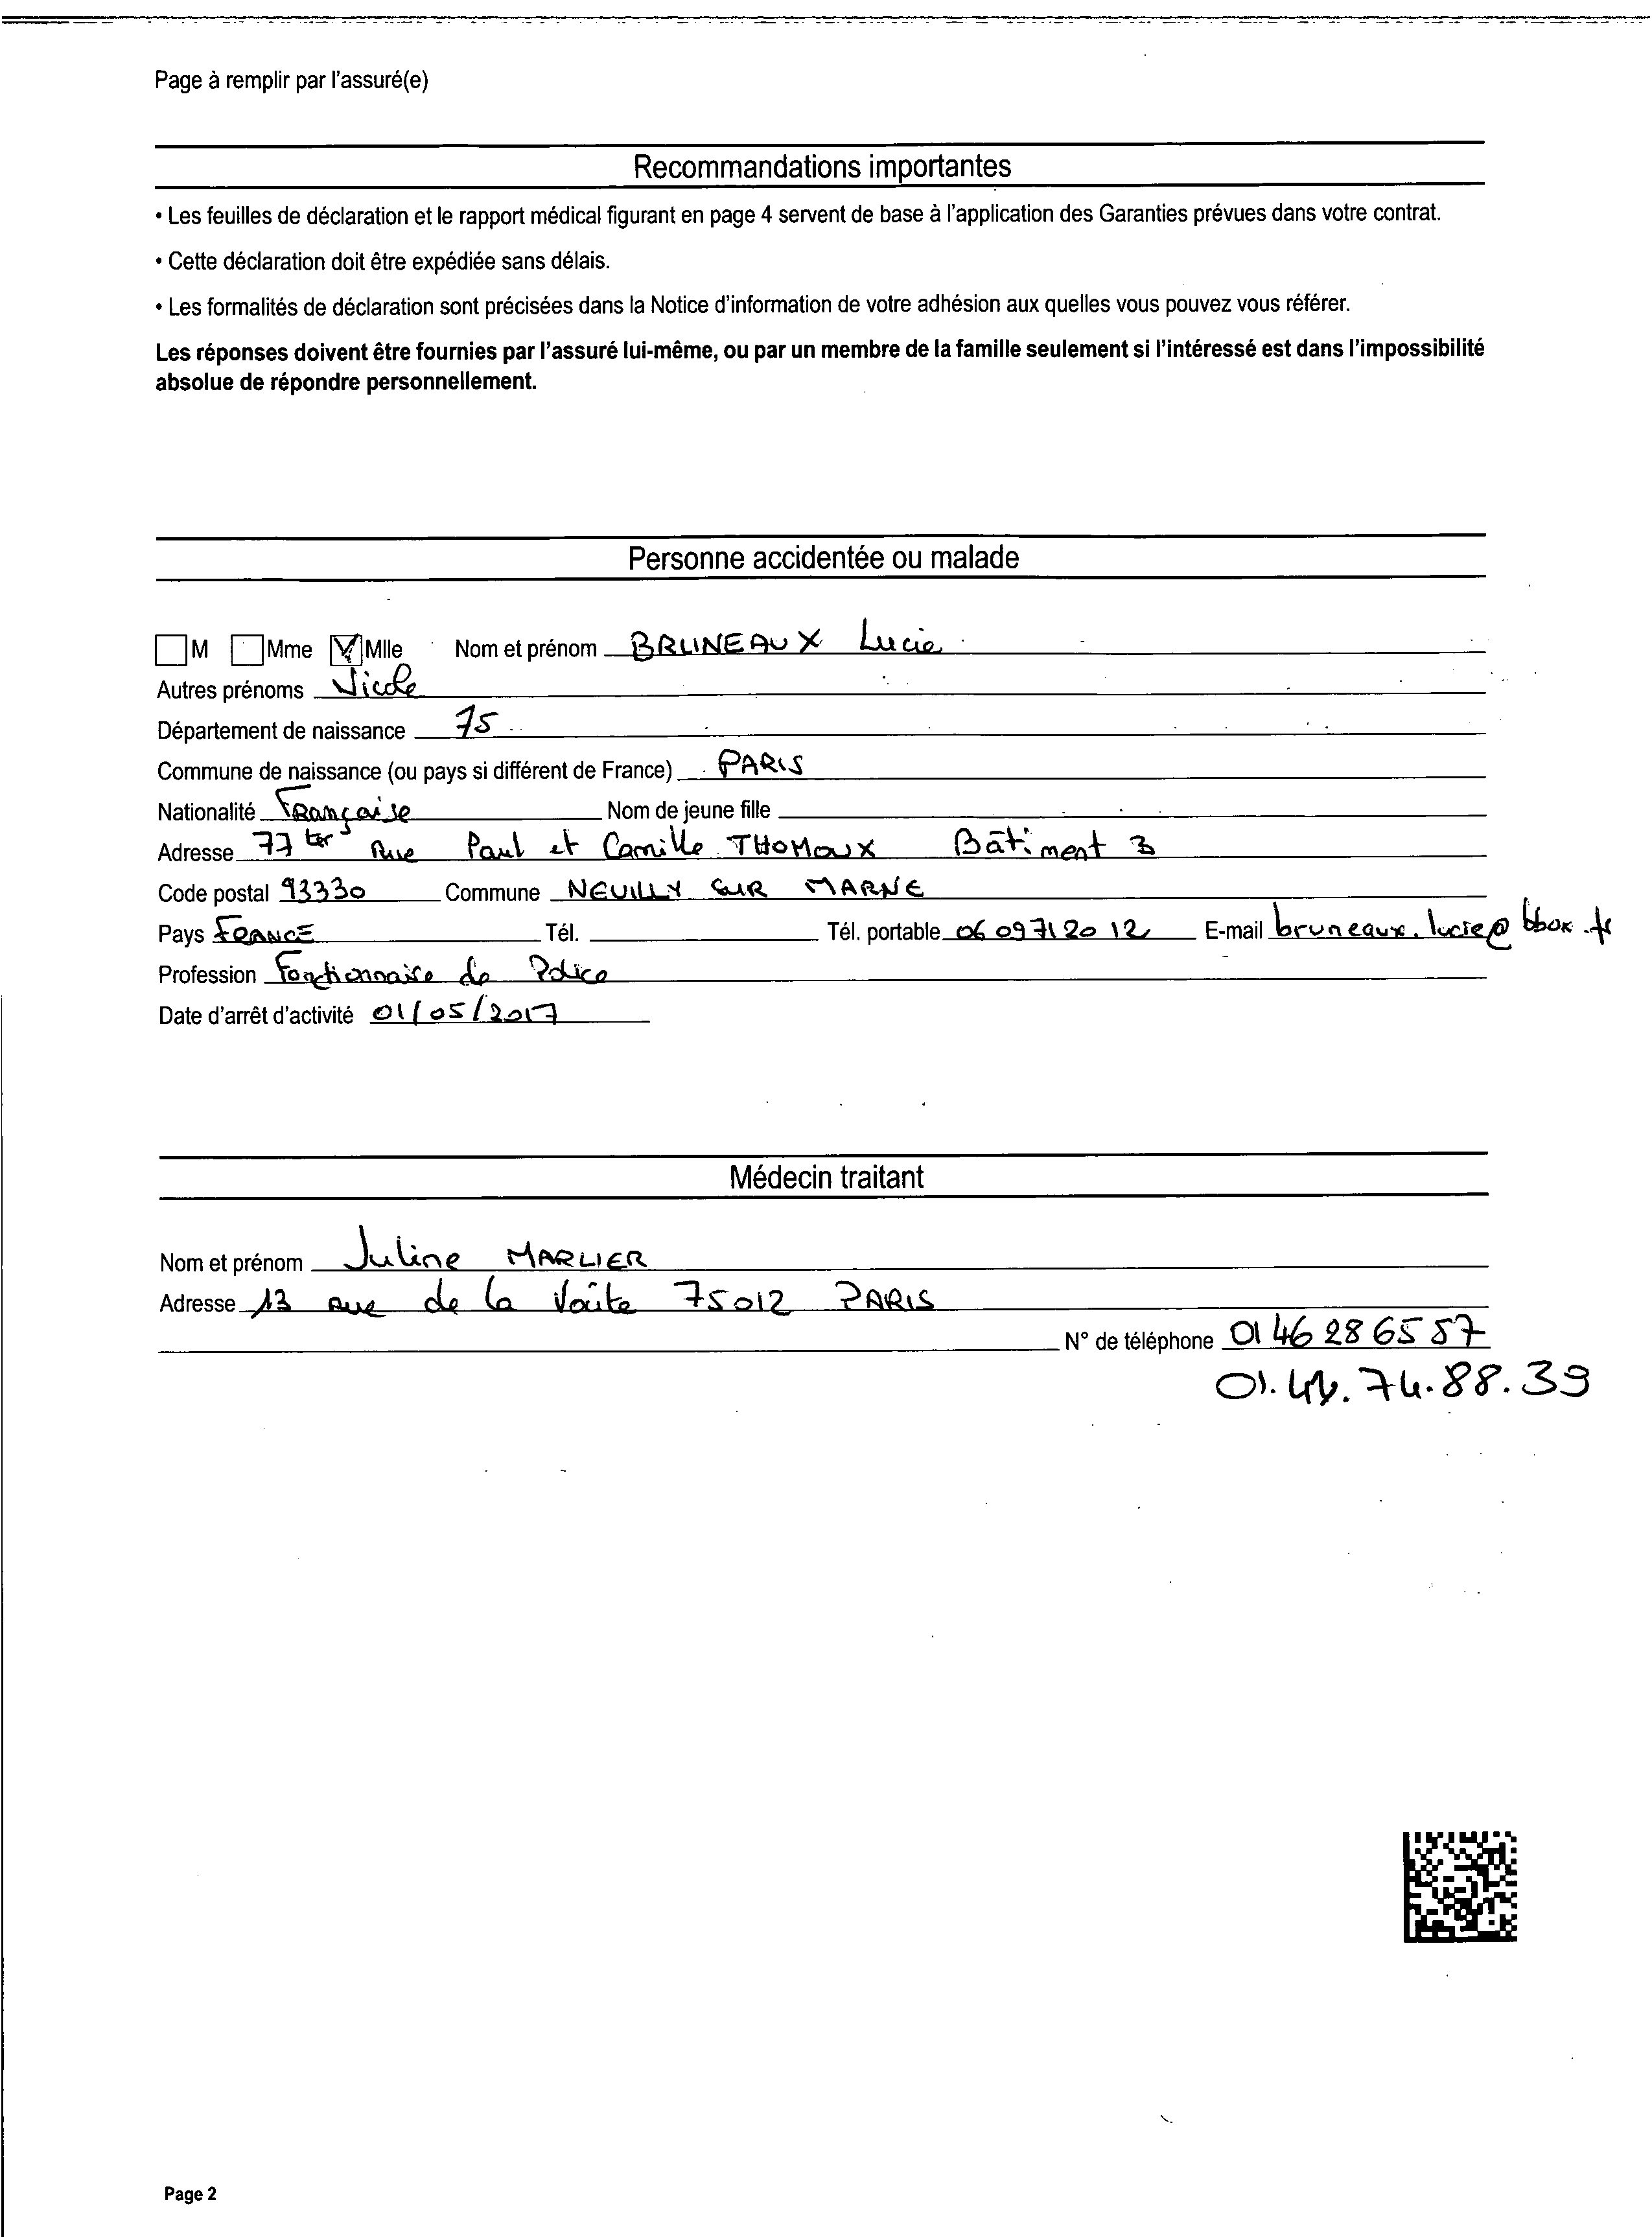 Page à remplir par l'assuré(e)
Recommandations importantes
• Les feuilles de déclaration et le rapport médical figurant en page 4 servent de base à l'application des Garanties prévues dans votre contrat.
• Cette déclaration doit être expédiée sans délais.
• Les formalités de déclaration sont précisées dans la Notice d'information de votre adhésion aux quelles vous pouvez vous référer.
Les réponses doivent être fournies par l'assuré lui-même, ou par un membre de la famille seulement si l'intéressé est dans l'impossibilité
absolue de répondre personnellement.
Personne accidentée ou malade
M Mme Mlle Nom et prénom BRUNEAUX Lucie
Autres prénoms Nicole
Département de naissance 75
Commune de naissance (ou pays si différent de France) PARIS
Nationalité Française Nom de jeune fille
Adresse 77 ter Rue Paul et Camille THOMOUX Bâtiment 3
Code postal 93330 Commune NEUILLY SUR MARNE
Pays FRANCE Tél. Tél. portable 06 09 71 20 12 E-mail bruneaux.lucie@bbox.fr
Profession Fonctionnaire de Police
Date d'arrêt d'activité 01/05/2017
Médecin traitant
Nom et prénom Juline MARLIER
Adresse 13 rue de la Voûte 75012 PARIS
N° de téléphone 01 46 28 65 57
Page 2